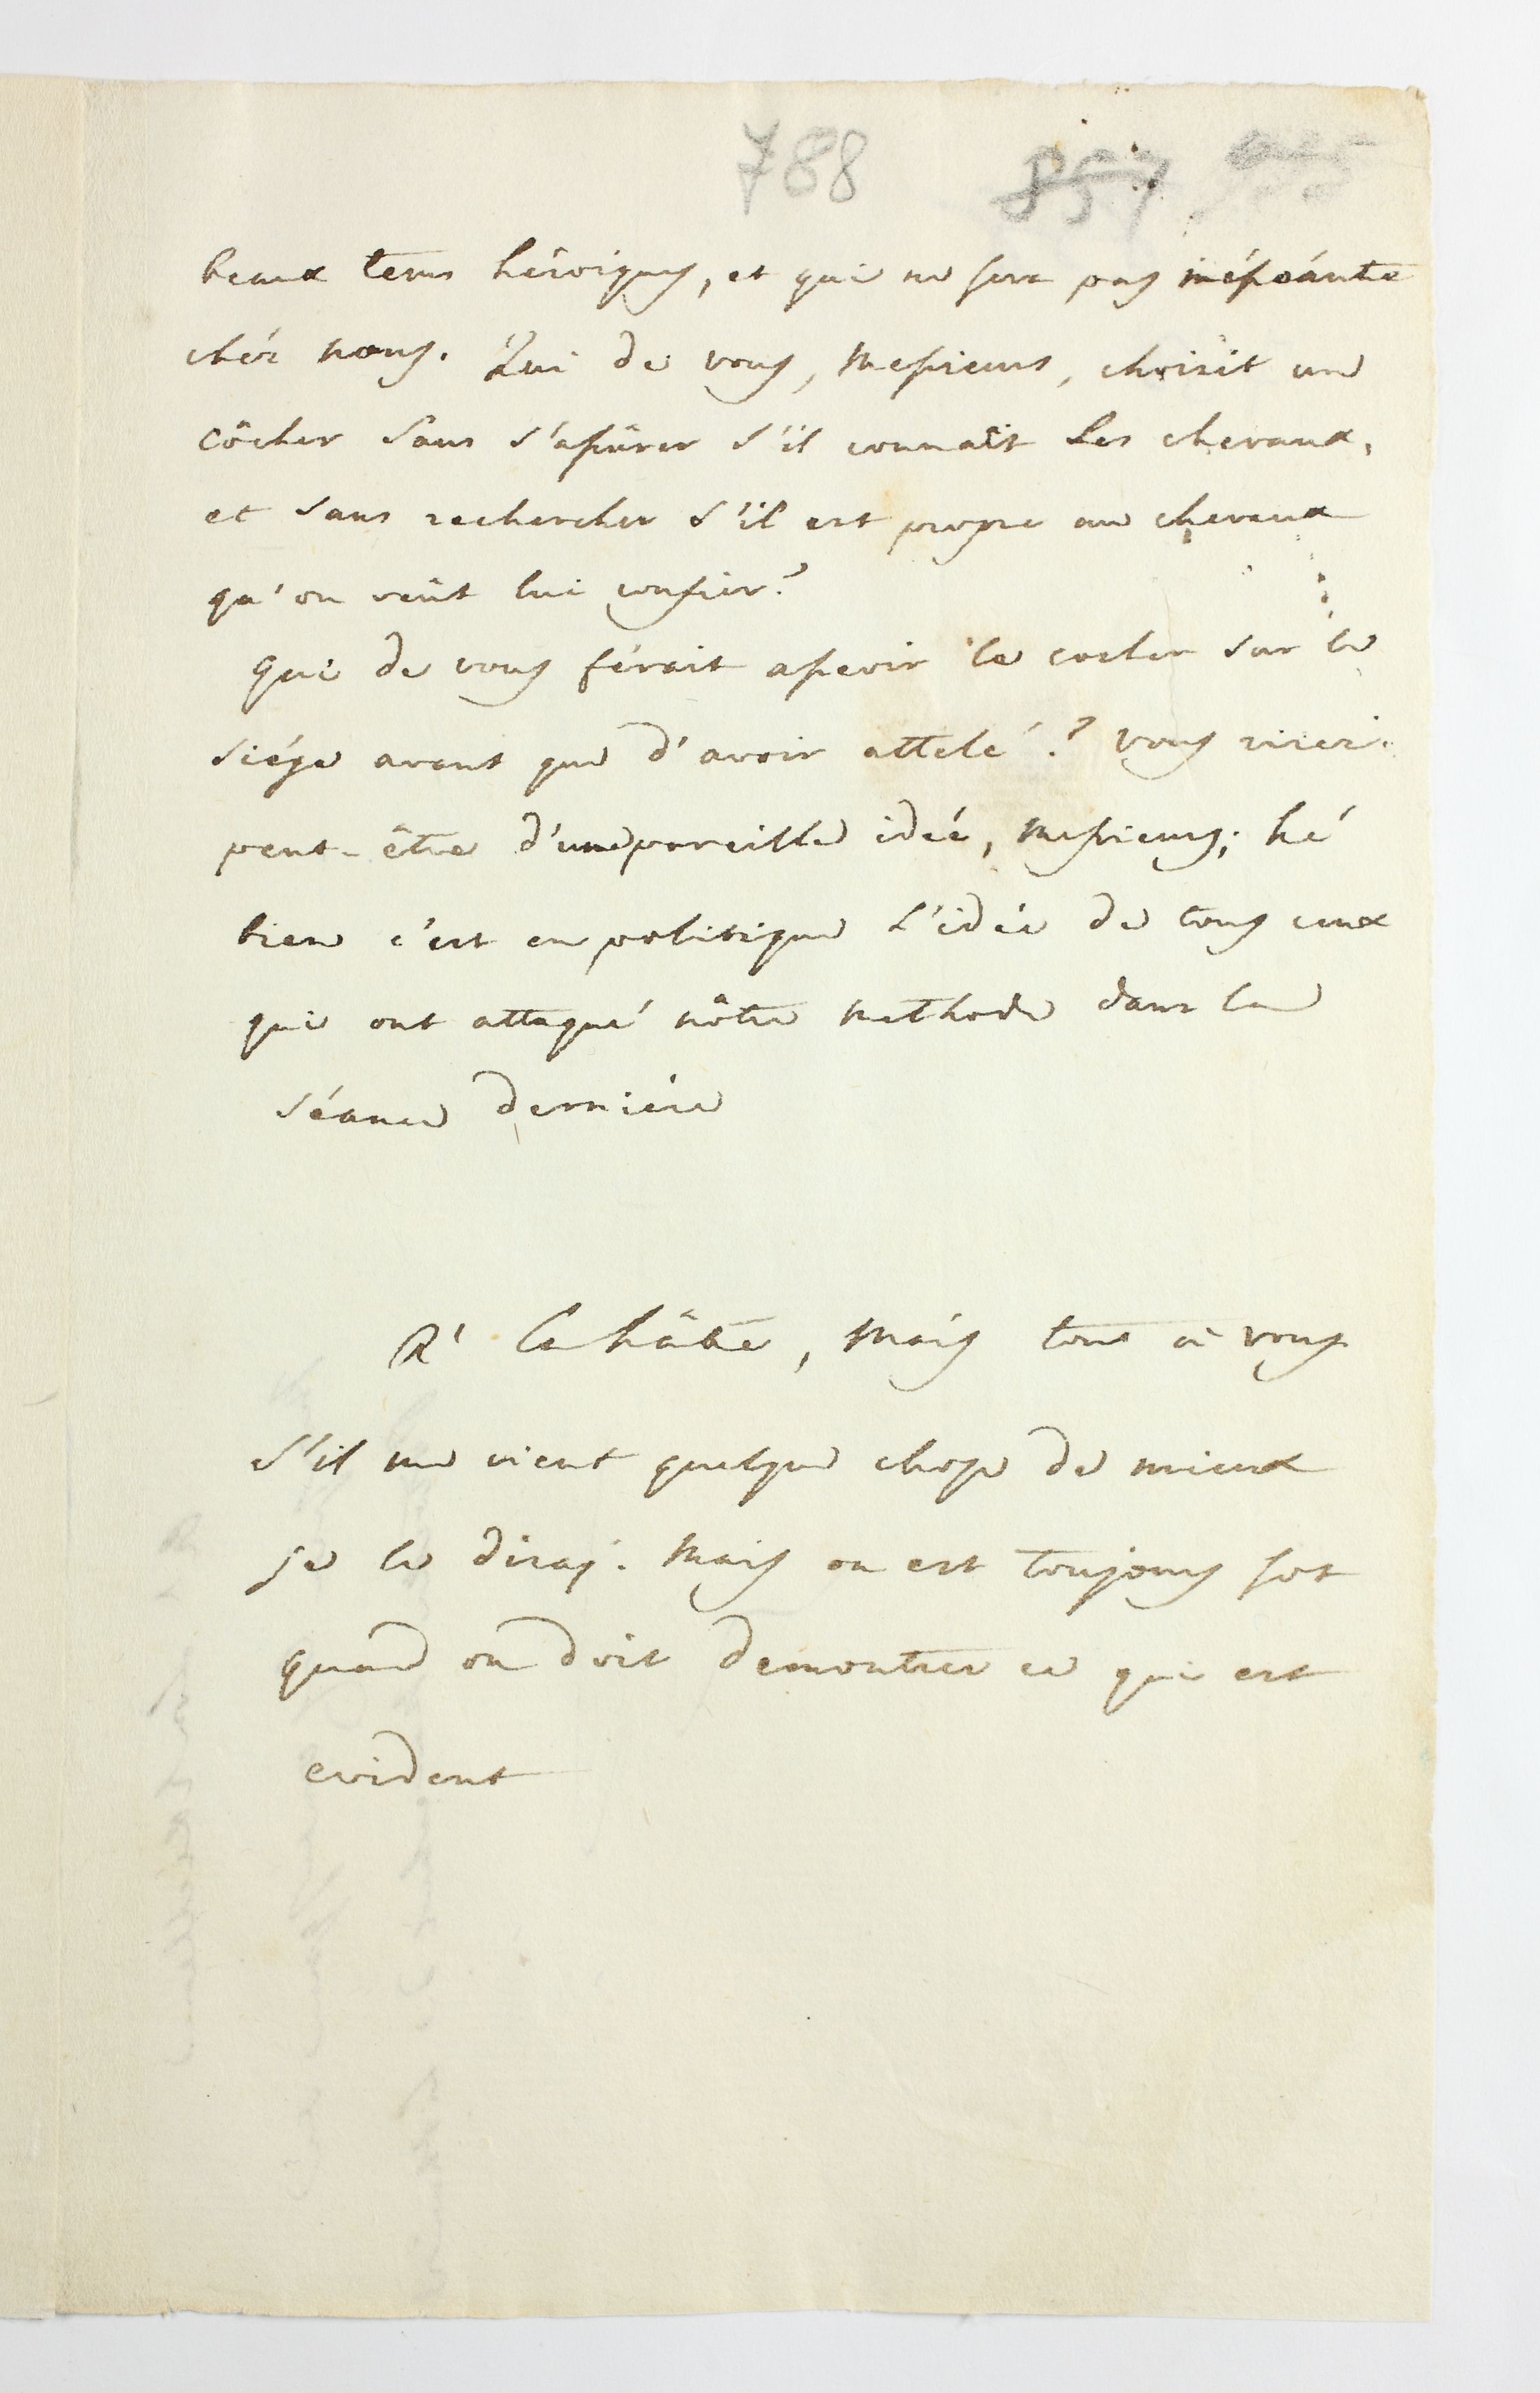 788 857
beaux tems héroiques, et qui ne sera pas inéséante
chéz nous. Qui de vous, Messieurs, choisit un
côcher sans s'assûrer s'il connaît les chevaux,
et sans rechercher s'il est propre au chevaux
qu'on veût lui confier?
Qui de vous férait asseoir le cocher sur le
siége avant que d'avoir attelé? Vous riréz
peut-être d'une pareille idée, Messieurs; hé
bien c'est en politique l'idée de tous ceux
qui ont attaqué nôtre methode dans la
séance derniére
A' la hâte, mais tout à vous
s'il me vient quelque chose de mieux
je le diraj. Mais on est toujours sot
quand on doit demontrer ce qui est
evident